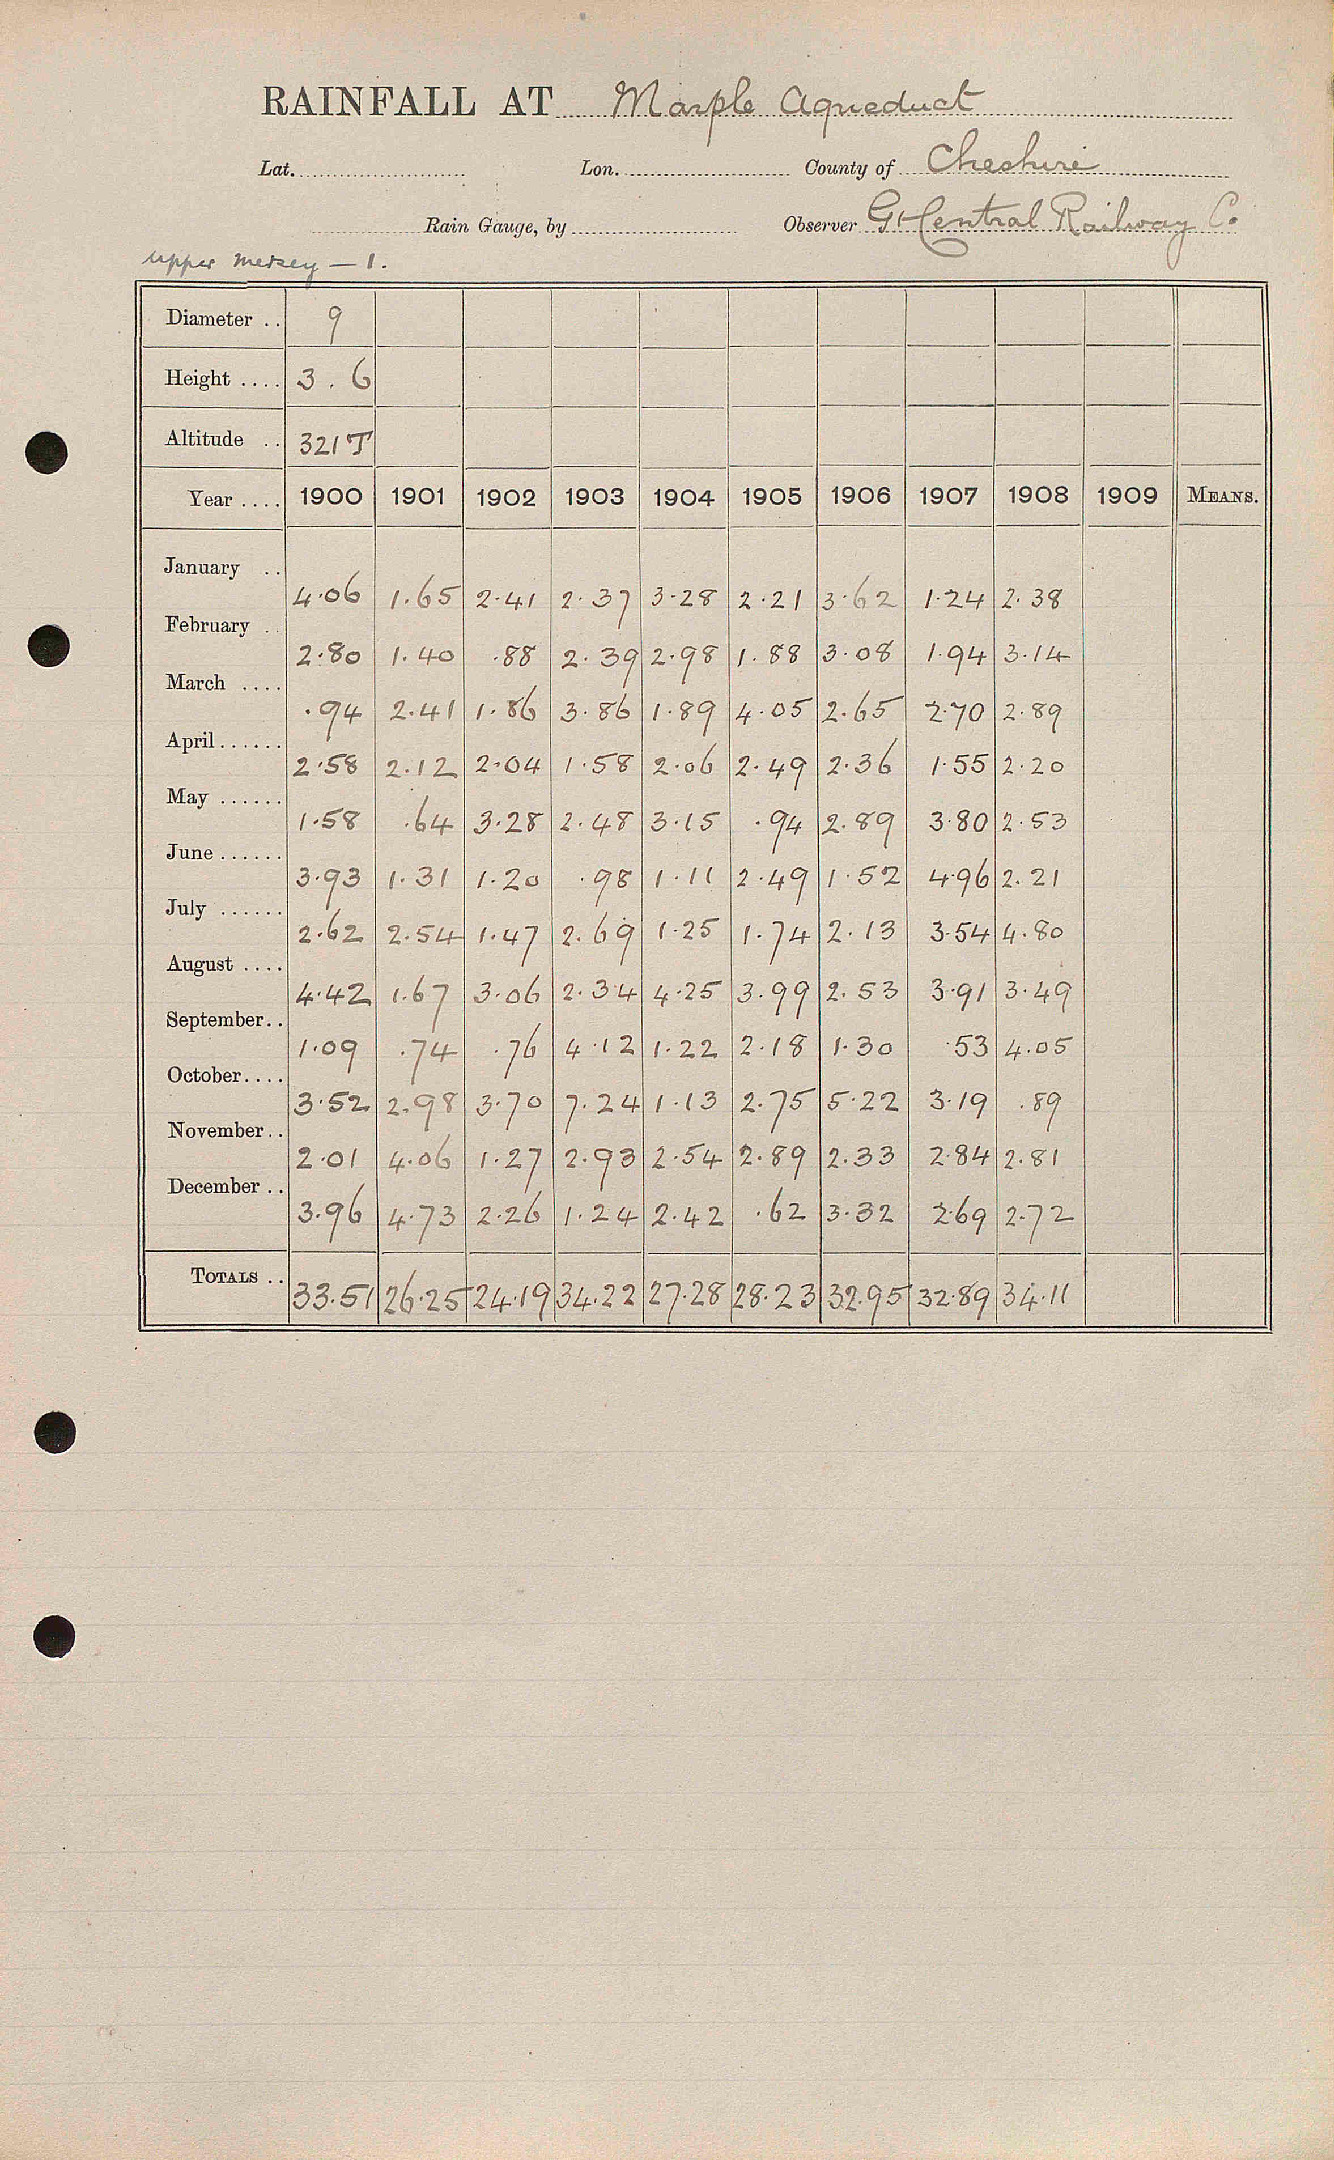 RAINFALL AT Marple Aqueduct
Lat. Lon. County of Cheshire
Rain Gauge, by Observer Gt Central Railway Co
Upper Mersey — 1.
Diameter .. 9
Height .... 3 . 6
Altitude .. 321 T
Year .... 1900 1901 1902 1903 1904 1905 1906 1907 1908 1909 MEANS.
January .. 4.06 1.65 2.41 2.37 3.28 2.21 3.62 1.24 2.38
February .. 2.80 1.40 .88 2.39 2.98 1.88 3.08 1.94 3.14
March .... .94 2.41 1.86 3.86 1.89 4.05 2.65 2.70 2.89
April ...... 2.58 2.12 2.04 1.58 2.06 2.49 2.36 1.55 2.20
May ...... 1.58 .64 3.28 2.48 3.15 .94 2.89 3.80 2.53
June ...... 3.93 1.31 1.20 .98 1.11 2.49 1.52 4.96 2.21
July ...... 2.62 2.54 1.47 2.69 1.25 1.74 2.13 3.54 4.80
August .... 4.42 1.67 3.06 2.34 4.25 3.99 2.53 3.91 3.49
September.. 1.09 .74 .76 4.12 1.22 2.18 1.30 .53 4.05
October.... 3.52 2.98 3.70 7.24 1.13 2.75 5.22 3.19 .89
November.. 2.01 4.06 1.27 2.93 2.54 2.89 2.33 2.84 2.81
December .. 3.96 4.73 2.26 1.24 2.42 .62 3.32 2.69 2.72
TOTALS .. 33.51 26.25 24.19 34.22 27.28 28.23 32.95 32.89 34.11